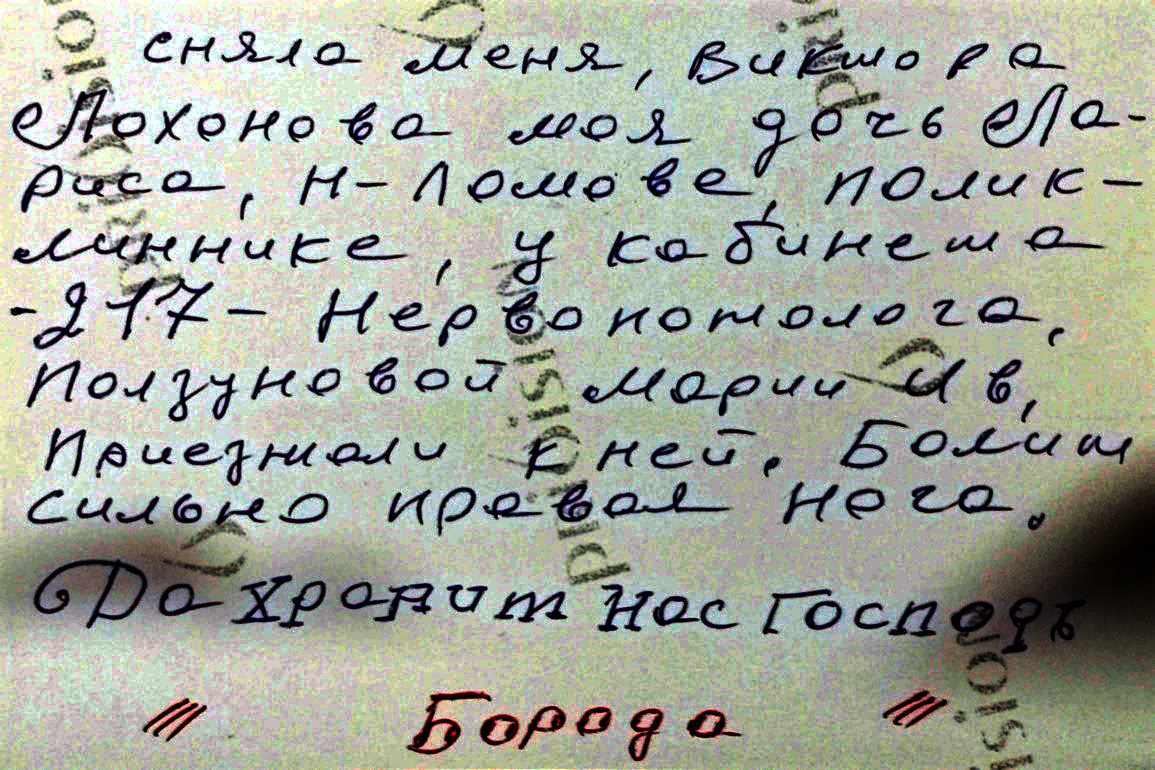 сняла меня, Виктора
Лохонова моя дочь Ла-
риса, Н-Ломове, полик-
линнике, у кабинета
-217- Нервопотолога,
Ползуновой Марии Ив,
Приезжали к ней. Болит
сильно правая нога.
Да хранит нас Господь
/// Борода ///